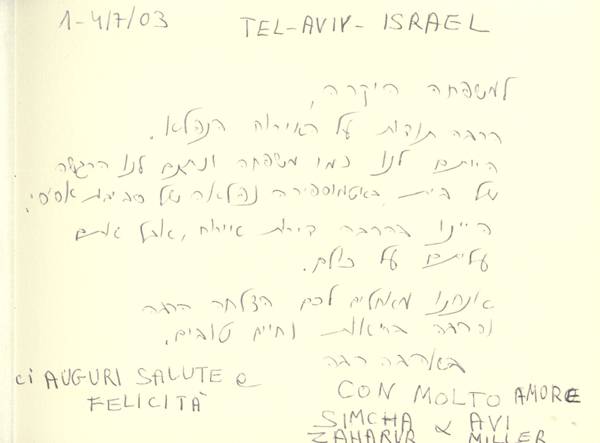 1-4/7/03 TEL-AVIV- ISRAEL
למשפחה היקרה,
הרבה תודות על האירוח הנפלא.
הייתם לנו כמו משפחה ונתתם לנו הרגשה
של בית באטמוספירה נפלאה של סביבת אסיסי.
היינו בהרבה בירות אירוח, אבל אתם
עליתם על כולם.
אנחנו מאחלים לכם הצלחה רבה
והרבה בריאות וחיים טובים.
באהבה רבה
ci AUGURI SALUTE e
FELICITÀ
CON MOLTO AMORE
SIMCHA & AVI
MILLER